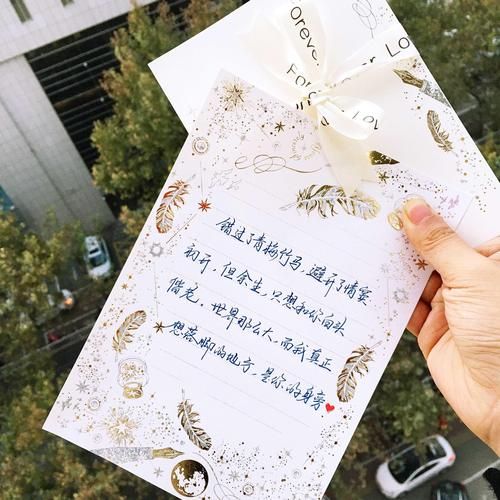 Forever
Forever Lo
For
Lov
错过了青梅竹马，避开了情窦
初开，但余生，只想和你白头
偕老，世界那么大，而我真正
想落脚的地方，是你的身旁